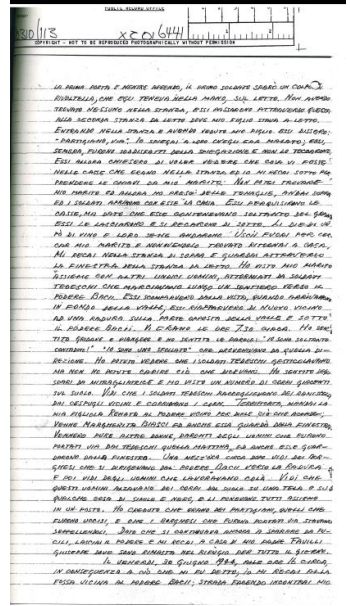 PUBLIC RECORD OFFICE
COPYRIGHT - NOT TO BE REPRODUCED PHOTOGRAPHICALLY WITHOUT PERMISSION
LA PRIMA PORTA E MENTRE APRENDO, IL PRIMO SOLDATO SPARÒ UN COLPO DI
RIVOLTELLA, CHE EGLI TENEVA NELLA MANO, SUL LETTO. NON AVENDO
TROVATO NESSUNO NELLA STANZA, ESSI PASSARONO ATTRAVERSO QUESTA
ALLA SECONDA STANZA DA LETTO DOVE MIO FIGLIO STAVA A LETTO.
ENTRANDO NELLA STANZA E AVENDO VEDUTO MIO FIGLIO ESSI DISSERO:
"PARTIGIANO, VIA". IO SPIEGAI A LORO CH'EGLI ERA MALATO; ESSI,
SEMBRA, FURONO SODDISFATTI DELLA SPIEGAZIONE E NON LO TOCCARONO.
ESSI ALLORA CHIESERO DI VOLER VEDERE CHE COSA VI FOSSE
NELLE CASSE CHE ERANO NELLA STANZA ED IO MI RECAI SOTTO PER
PRENDERE LE CHIAVI DA MIO MARITO. NON POTEI TROVARE
MIO MARITO ED ALLORA HO PRESO DELLE TENAGLIE, ANDAI SOPRA
ED I SOLDATI APRIRONO CON ESSE LA CASSA. ESSI PERQUISIRONO LE
CASSE, MA DATO CHE ESSE CONTENEVANO SOLTANTO DEL GRANO
ESSI LE LASCIARONO E SI RECARONO DI SOTTO. LI DIEDI UN
PO DI VINO E LORO SE NE ANDARONO. USCII FUORI PER CERCAR
MIO MARITO E NON AVENDOLO TROVATO RITORNAI A CASA.
MI RECAI NELLA STANZA DI SOPRA E GUARDAI ATTRAVERSO
LA FINESTRA DELLA STANZA DA LETTO. HO VISTO MIO MARITO
ASSIEME CON ALTRI UOMINI, ATTORNIATI DA SOLDATI
TEDESCHI CHE MARCIAVANO LUNGO UN SENTIERO VERSO IL
PODERE BACII. ESSI SCOMPARVERO DALLA VISTA, QUANDO ARRIVARONO
IN FONDO DELLA VALLE, ESSI RIAPPARVERO DI NUOVO VICINO
AD UNA RADURA SULLA PARTE OPPOSTA DELLA VALLE E SOTTO
IL PODERE BACII. VI ERANO LE ORE 7.30 CIRCA. HO SEN-
TITO GRIDARE E PIANGERE E HO SENTITO LE PAROLE: "IO SONO SOLTANTO
CONTADINO!" "IO SONO UNO SFOLLATO" CHE PROVENIVANO DA QUELLA DI-
REZIONE. HO POTUTO VEDERE CHE I SOLDATI TEDESCHI GESTICOLAVANO
MA NON HO POTUTO CAPIRE CIÒ CHE DICEVANO. HO SENTITO DEGLI
SPARI DA MITRAGLIATRICE E HO VISTO UN NUMERO DI CORPI GIACENTI
SUL SUOLO. VIDI CHE I SOLDATI TEDESCHI RACCOGLIEVANO DEI RAMOSCELLI
DAI CESPUGLI VICINI E COPRIVANO I CORPI. TERRIFICATA, MANDAI LA
MIA FIGLIOLA RENATA AL PODERE VICINO PER DIRE CIÒ CHE ACCADEVA.
VENNE MARGHERITA BIAGGI ED ANCHE ESSA GUARDÒ DALLA FINESTRA.
VENNERO PURE ALTRE DONNE, PARENTI DEGLI UOMINI CHE FURONO
PORTATI VIA DAI TEDESCHI QUELLA MATTINA, ED ANCHE ESSE GUAR-
DARONO DALLA FINESTRA. UNA MEZZ'ORA CIRCA DOPO VIDI DEI BOR-
GHESI CHE SI DIRIGEVANO DAL PODERE BACII VERSO LA RADURA
E POI VIDI DEGLI UOMINI CHE LAVORAVANO COLÀ. VIDI CHE
QUESTI UOMINI ALZAVANO DEI CORPI DAL SUOLO SU UNA TELA O SU
QUALCOSA COSA DI SIMILE E NERO, E LI PONEVANO TUTTI ASSIEME
IN UN POSTO. HO CREDUTO CHE ERANO DEI PARTIGIANI, QUELLI CHE
FURONO UCCISI, E CHE I BORGHESI CHE FURONO PORTATI VIA STAVANO
SEPPELLENDOLI. DATO CHE SI CONTINUAVA ANCORA A SPARARE DA FU-
CILI, LASCIAI IL PODERE E MI RECAI A CASA DI MIO PADRE FAVILLI
GIUSEPPE DOVE SONO RIMASTA NEL RIFUGIO PER TUTTO IL GIORNO.
IL VENERDI, 30 GIUGNO 1944, ALLE ORE 16 CIRCA,
IN CONSEGUENZA A CIÒ CHE MI FU DETTO, IO MI RECAI ALLA
FOSSA VICINA AL PODERE BACII; STRADA FACENDO INCONTRAI MIO